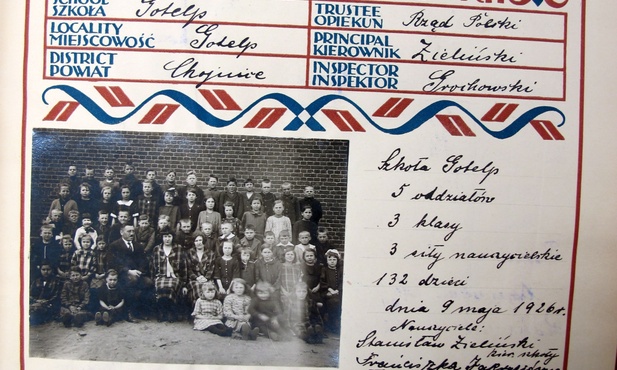 SCHOOL
SZKOŁA Gotelp
TRUSTEE
OPIEKUN Rząd Polski
LOCALITY
MIEJSCOWOŚĆ Gotelp
PRINCIPAL
KIEROWNIK Zieliński
DISTRICT
POWIAT Chojnice
INSPECTOR
INSPEKTOR Grochowski
Szkoła Gotelp
5 oddziałów
3 klasy
3 siły nauczycielskie
132 dzieci
dnia 9 maja 1926 r.
Nauczyciele:
Stanisław Zieliński
kier. szkoły
Franciszka